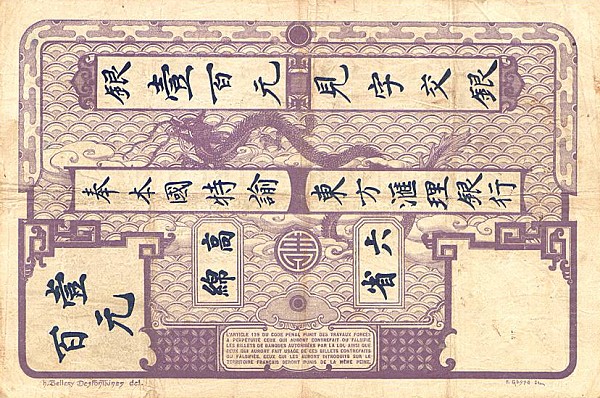 銀壹百元 見字交銀
奉本國特諭 東方滙理銀行
高綿
六省
壹百元
L'ARTICLE 139 DU CODE PENAL PUNIT DES TRAVAUX FORCÉS
A PERPÉTUITÉ CEUX QUI AURONT CONTREFAIT OU FALSIFIÉ
LES BILLETS DE BANQUES AUTORISÉES PAR LA LOI, AINSI QUE
CEUX QUI AURONT FAIT USAGE DE CES BILLETS CONTREFAITS
OU FALSIFIÉS. CEUX QUI LES AURONT INTRODUITS SUR LE
TERRITOIRE FRANÇAIS SERONT PUNIS DE LA MÊME PEINE.
h. Bellery Desfontaines del.